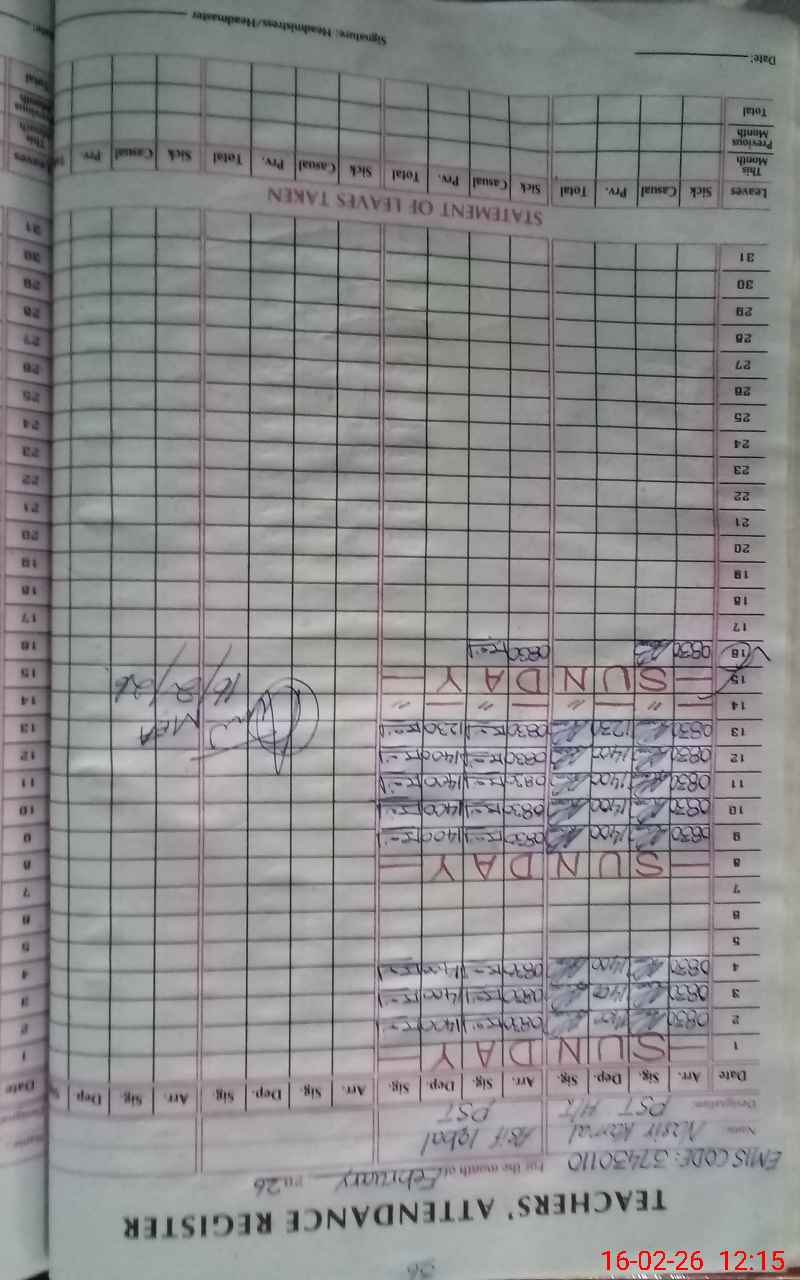 36
TEACHERS' ATTENDANCE REGISTER
EMIS CODE: 37430110 For the month of February 2026
Name Nasir Kamal Asif Iqbal
Designation PST H/T PST
Date Arr. Sig. Dep. Sig. Arr. Sig. Dep. Sig. Arr. Sig. Dep. Sig. Arr. Sig. Dep
1 — SUNDAY —
2 0830 1400 0830 1400
3 0830 1400 0830 1400
4 0830 1400 0830 1400
5
6
7
8 — SUNDAY —
9 0830 1400 0830 1400
10 0830 1400 0830 1400
11 0830 1400 0830 1400
12 0830 1400 0830 1400
13 0830 1230 0830 1230 MEA
14 — " — " — " — "
15 — SUNDAY — 16/2/26
16 0830 0830
17
18
19
20
21
22
23
24
25
26
27
28
29
30
31
STATEMENT OF LEAVES TAKEN
Leaves Sick Casual Prv. Total Sick Casual Prv. Total Sick Casual Prv. Total Sick Casual Prv.
This Month
Previous Month
Total
Date: Signature: Headmistress/Headmaster
16-02-26 12:15